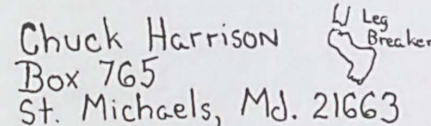 Chuck Harrison
Box 765
St. Michaels, Md. 21663
Leg
Breaker